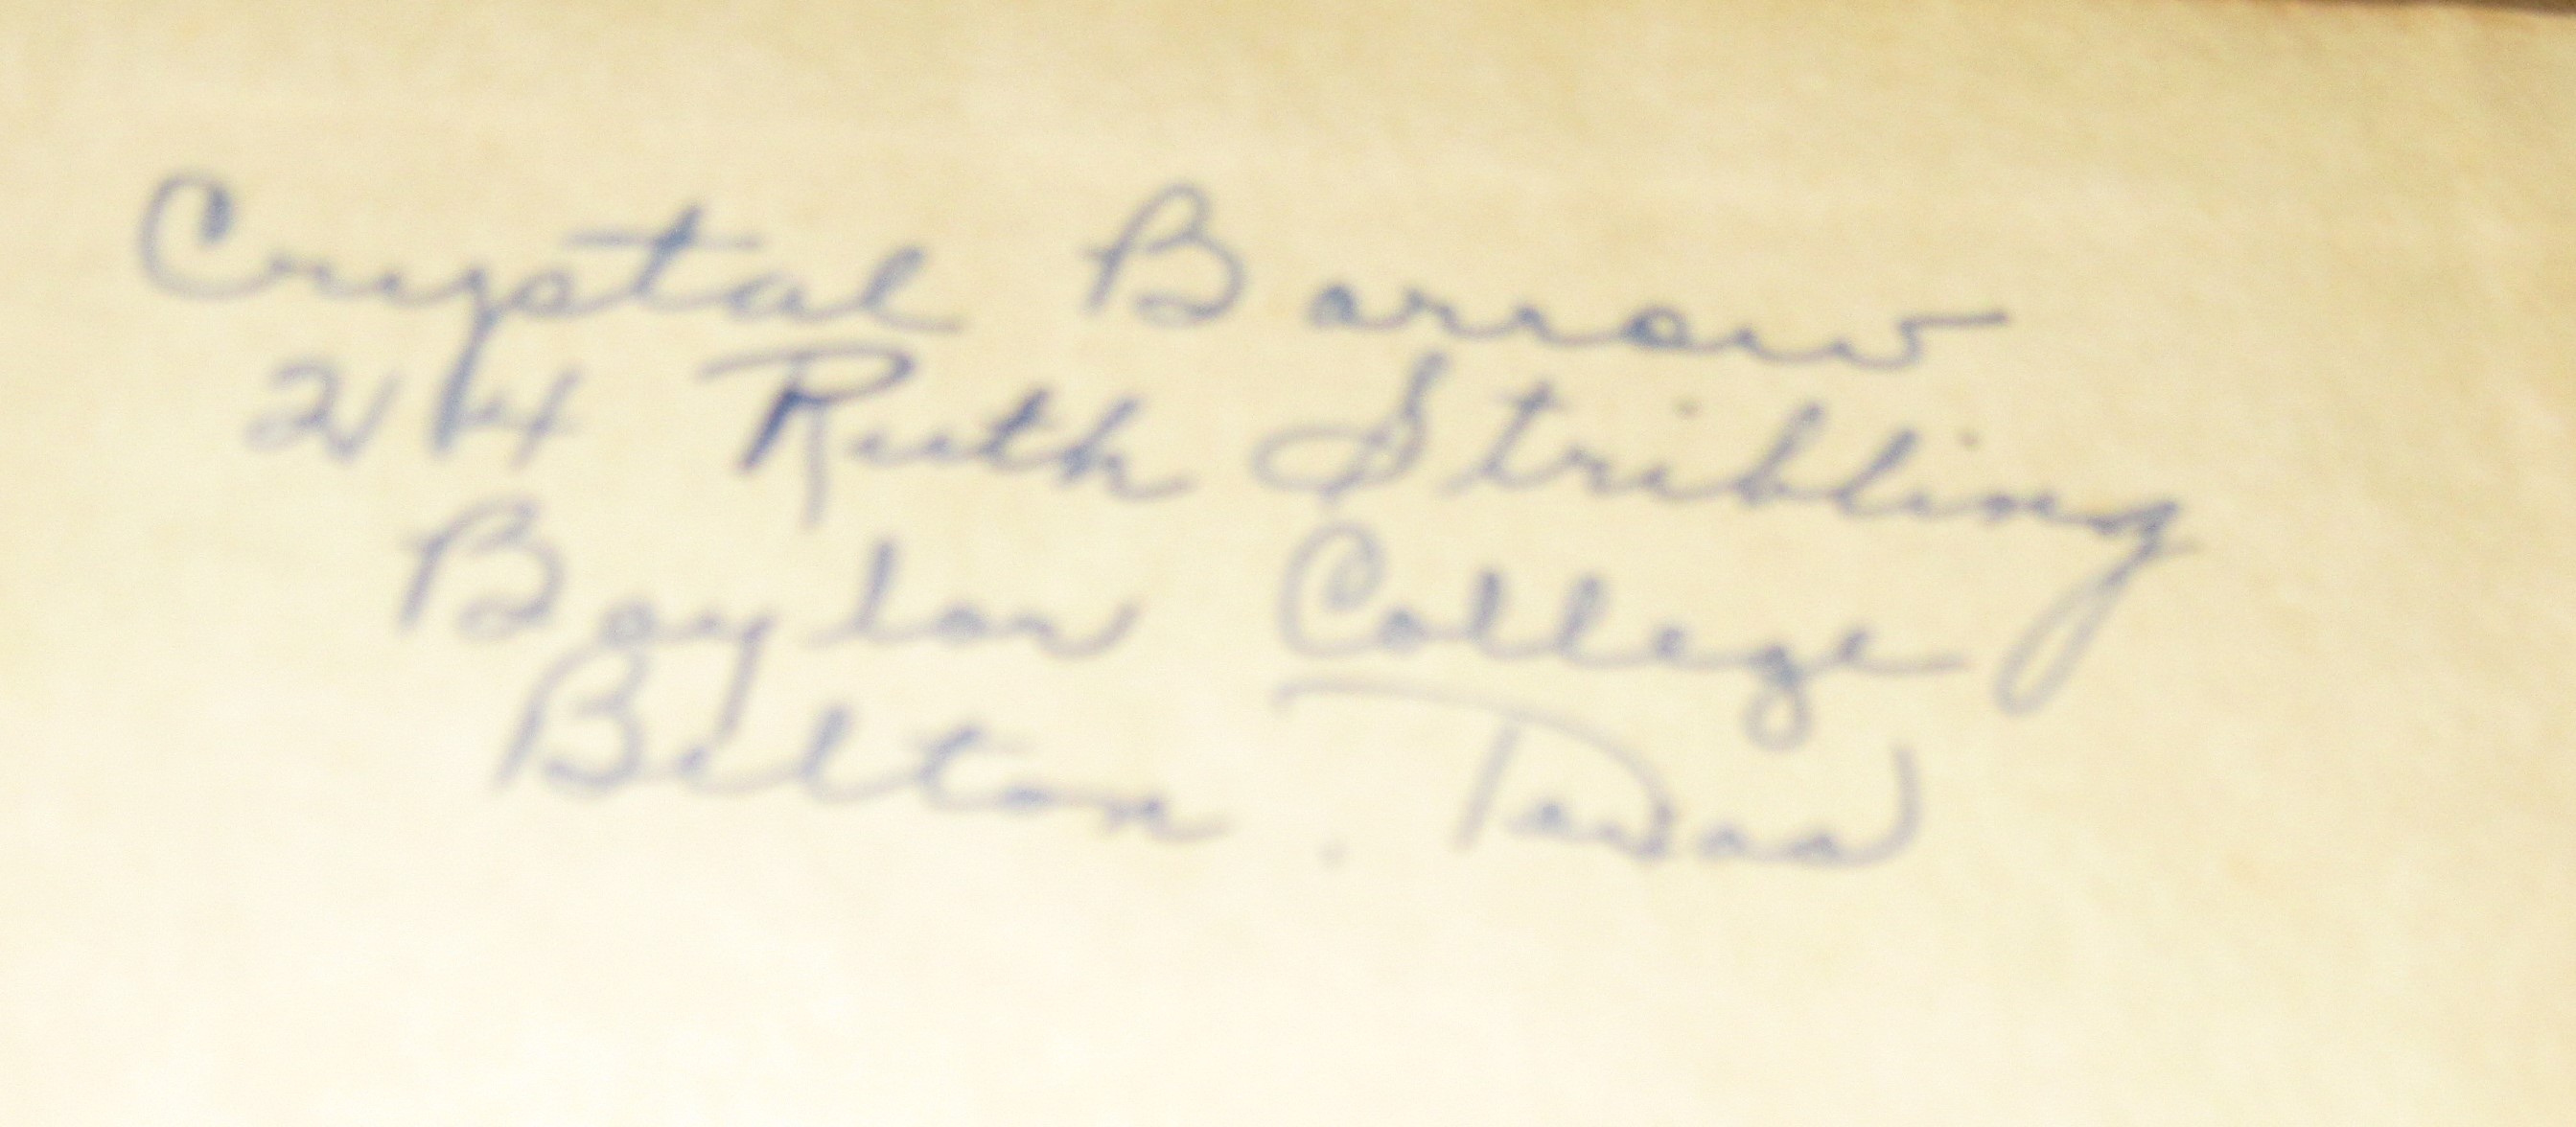 Crystal Barrow
214 Ruth Stribling
Baylor College
Belton, Texas